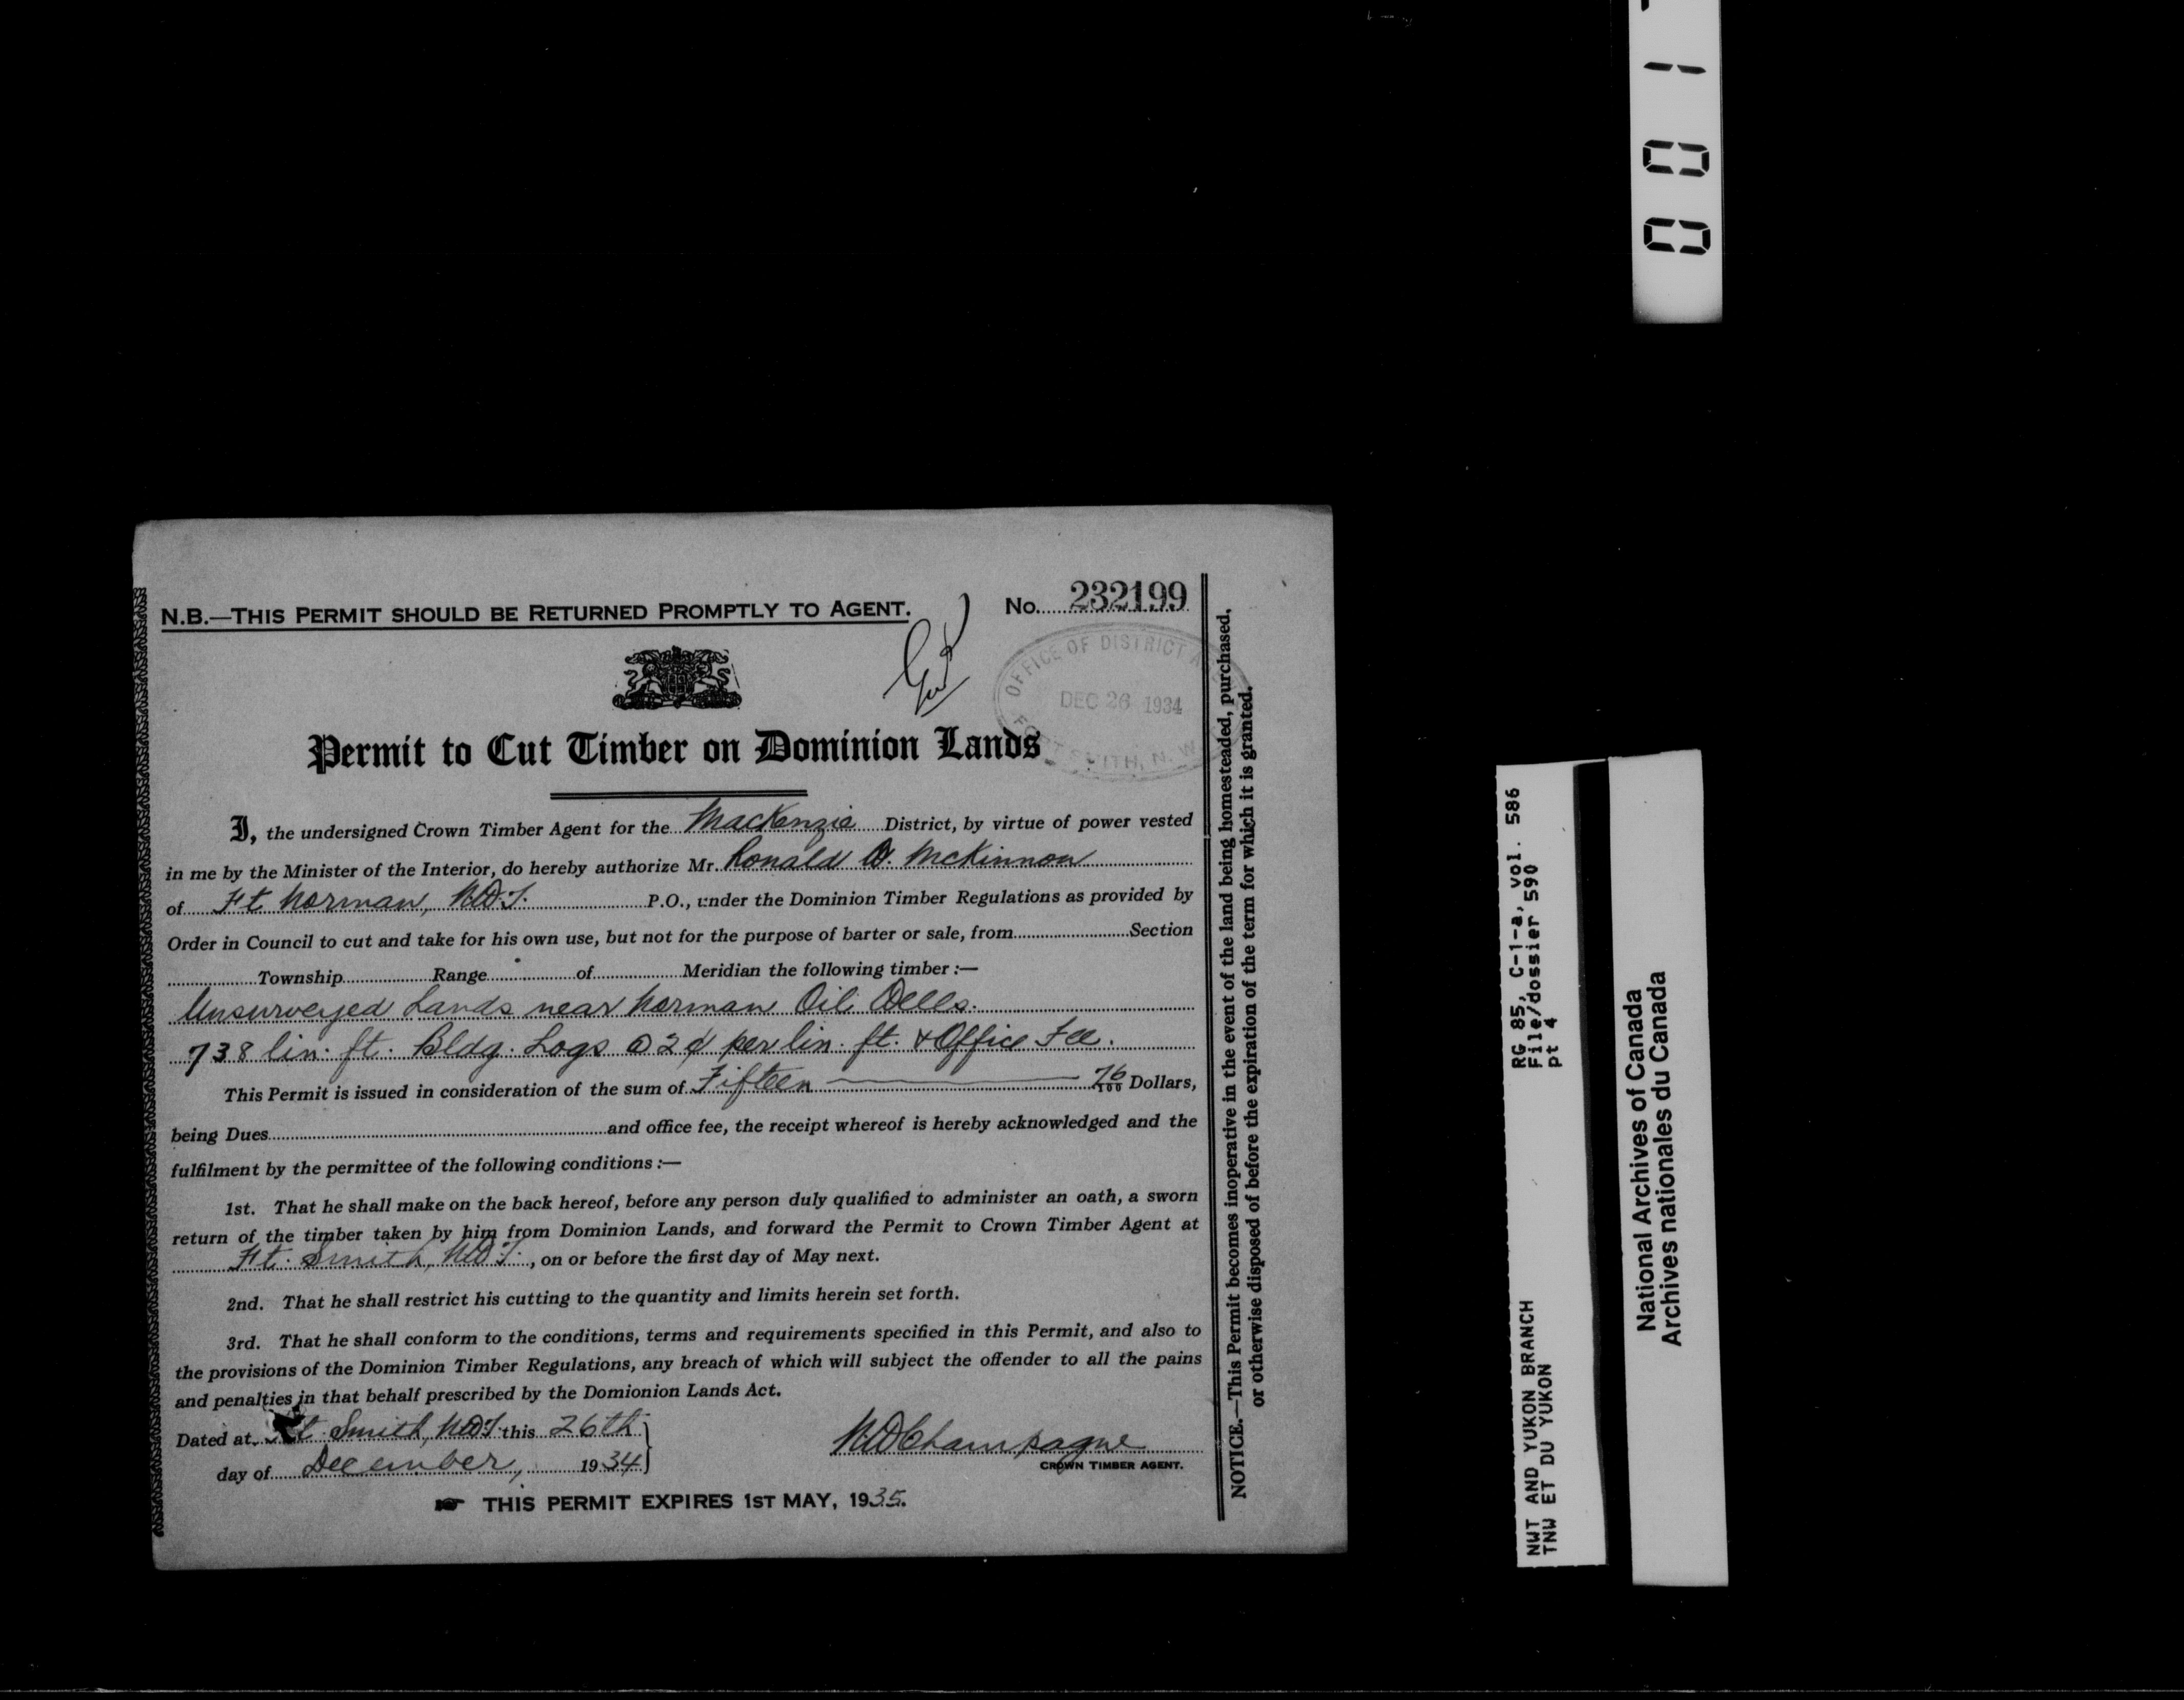 N.B.—THIS PERMIT SHOULD BE RETURNED PROMPTLY TO AGENT.
No. 232199
OFFICE OF DISTRICT
DEC 26 1934
FORT SMITH, N.W.
Permit to Cut Timber on Dominion Lands
I, the undersigned Crown Timber Agent for the MacKenzie District, by virtue of power vested
in me by the Minister of the Interior, do hereby authorize Mr. Ronald W. McKinnon
of Ft Norman, NWT. P.O., under the Dominion Timber Regulations as provided by
Order in Council to cut and take for his own use, but not for the purpose of barter or sale, from Section
Township Range of Meridian the following timber:—
Unsurveyed Lands near Norman Oil Wells.
738 lin. ft. Bldg. Logs @ 2¢ per lin. ft. & Office Fee.
This Permit is issued in consideration of the sum of Fifteen 76/100 Dollars,
being Dues and office fee, the receipt whereof is hereby acknowledged and the
fulfilment by the permittee of the following conditions:—
1st. That he shall make on the back hereof, before any person duly qualified to administer an oath, a sworn
return of the timber taken by him from Dominion Lands, and forward the Permit to Crown Timber Agent at
Ft. Smith, NWT., on or before the first day of May next.
2nd. That he shall restrict his cutting to the quantity and limits herein set forth.
3rd. That he shall conform to the conditions, terms and requirements specified in this Permit, and also to
the provisions of the Dominion Timber Regulations, any breach of which will subject the offender to all the pains
and penalties in that behalf prescribed by the Domionion Lands Act.
Dated at Ft. Smith, NWT this 26th
day of December, 1934
Champagne
CROWN TIMBER AGENT.
THIS PERMIT EXPIRES 1ST MAY, 1935.
NOTICE.—This Permit becomes inoperative in the event of the land being homesteaded, purchased,
or otherwise disposed of before the expiration of the term for which it is granted.
NWT AND YUKON BRANCH RG 85, C-1-a, vol. 586
TNW ET DU YUKON File/dossier 590
pt 4
National Archives of Canada
Archives nationales du Canada
001